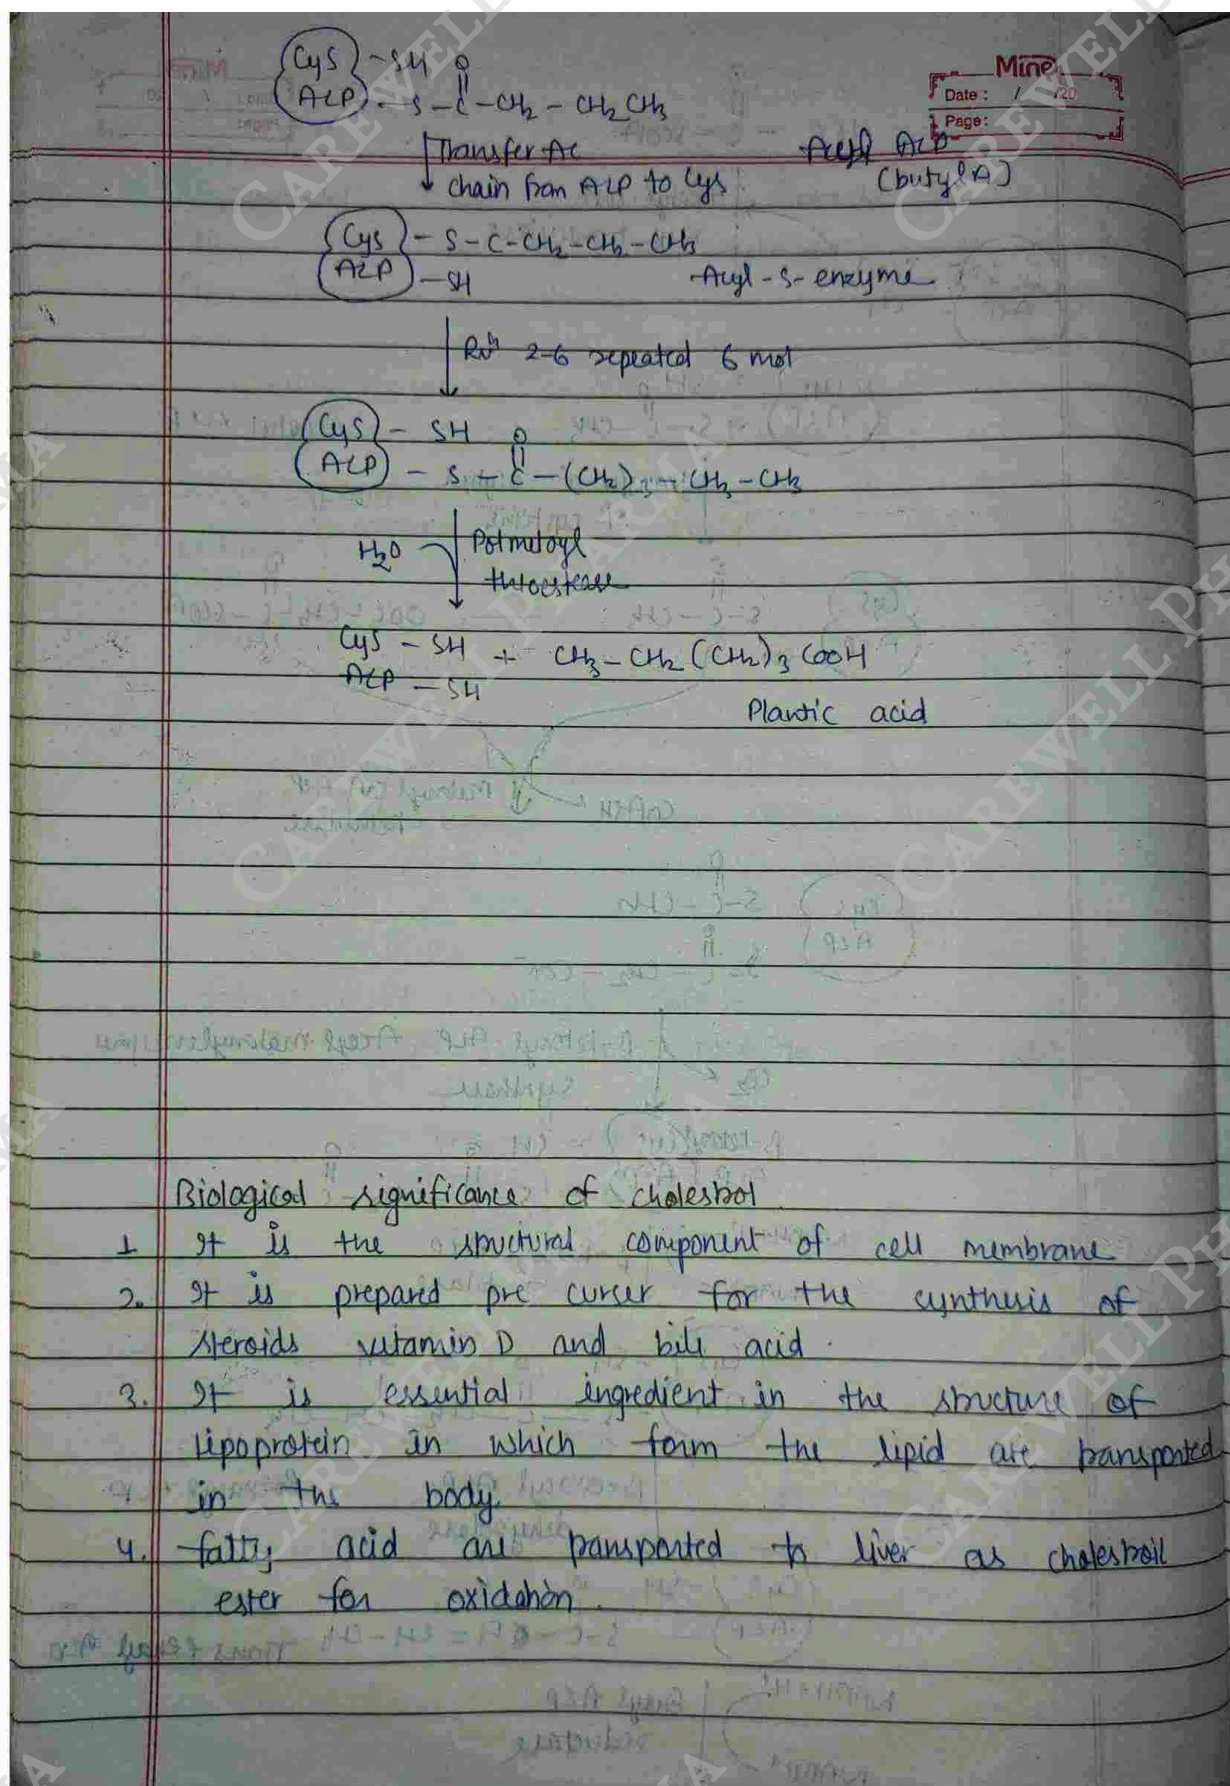 Mine
Date : / /20
Page:
Cys - SH O
ACP - S - C - CH₂ - CH₂ CH₃
Transfer AC
chain from ACP to Cys
Acyl ACP
(butyl A)
Cys - S - C - CH₂ - CH₂ - CH₃
ACP - SH
Acyl - S - enzyme
Rxⁿ 2-6 repeated 6 mol
Cys - SH O
ACP - S - C - (CH₂)₃ - CH₃ - CH₃
H₂O
thioestease
Cys - SH + CH₃ - CH₂ (CH₂)₃ COOH
ACP - SH
acid
Biological significance of cholestrol
1 It is the structural component of cell membrane
2. It is prepared pre curser for the synthesis of
steroids vitamin D and bile acid.
3. It is essential ingredient in the structure of
lipoprotein in which form the lipid are transported
in the body.
4. fatty acid are transported to liver as
ester for oxidation.
CAREWELL PHARMA